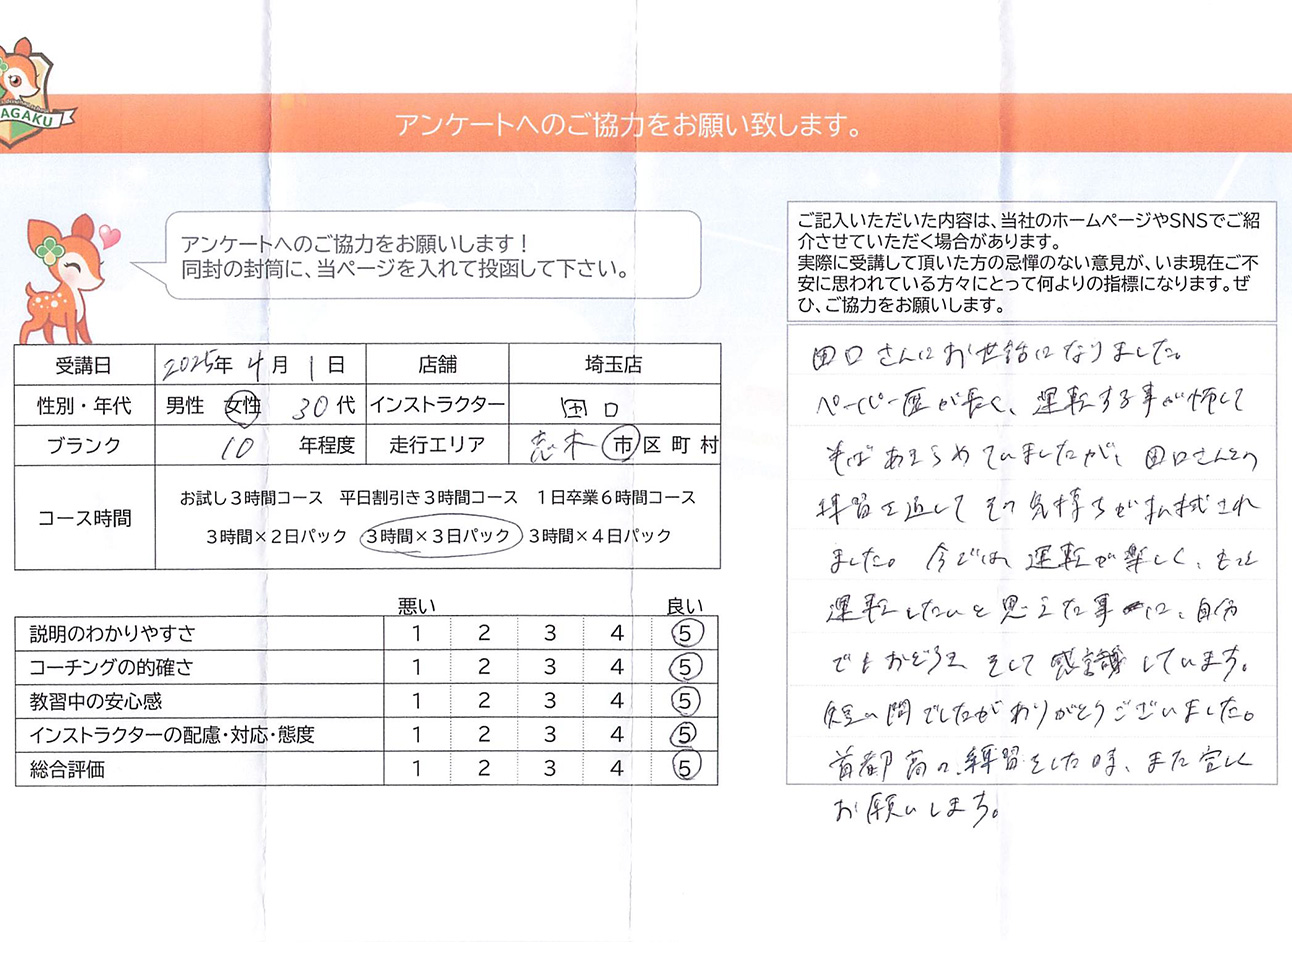 AGAKU
アンケートへのご協力をお願い致します。
アンケートへのご協力をお願いします！
同封の封筒に、当ページを入れて投函して下さい。
受講日 2025年 4月 1日 店舗 埼玉店
性別・年代 男性 女性 30代 インストラクター 田口
ブランク 10 年程度 走行エリア 志木 市区町村
コース時間
お試し３時間コース 平日割引き３時間コース １日卒業６時間コース
３時間×２日パック ３時間×３日パック ３時間×４日パック
悪い 良い
説明のわかりやすさ 1 2 3 4 5
コーチングの的確さ 1 2 3 4 5
教習中の安心感 1 2 3 4 5
インストラクターの配慮・対応・態度 1 2 3 4 5
総合評価 1 2 3 4 5
ご記入いただいた内容は、当社のホームページやSNSでご紹
介させていただく場合があります。
実際に受講して頂いた方の忌憚のない意見が、いま現在ご不
安に思われている方々にとって何よりの指標になります。ぜ
ひ、ご協力をお願いします。
田口さんにお世話になりました。
ペーパー歴が長く、運転する事が怖くて
半ばあきらめていましたが、田口さんとの
練習を通してその気持ちが払拭され
ました。今では運転が楽しく、もっと
運転したいと思えた事に、自分
でもおどろき そして感謝しています。
短い間でしたがありがとうございました。
首都高の練習をした時、また宜しく
お願いします。